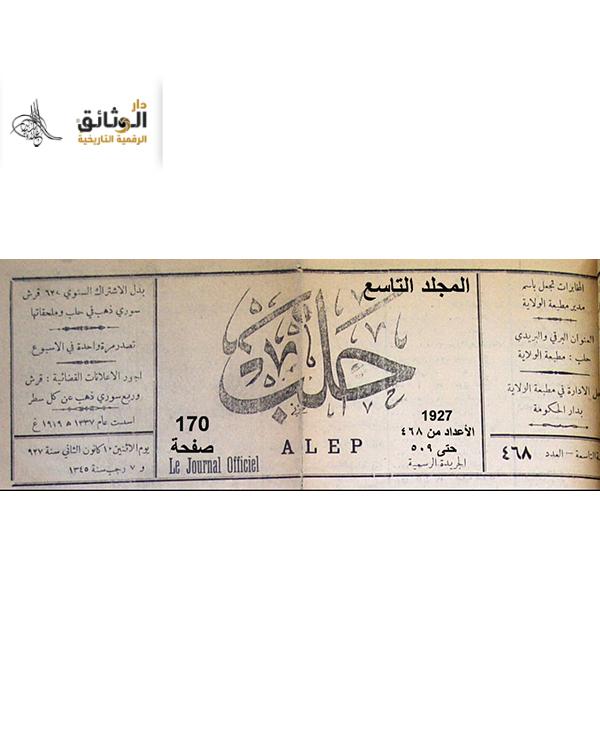 دار
الوثائق
الرقمية التاريخية
المخابرات تجعل باسم
مدير مطبعة الولاية
العنوان البرقي والبريدي
حلب : مطبعة الولاية
الادارة في مطبعة الولاية
بدار الحكومة
التاسعة - العدد ٤٦٨
المجلد التاسع
حلب
1927
الأعداد من ٤٦٨
حتى ٥٠٩
الجريدة الرسمية
ALEP
170
صفحة
Le Journal Officiel
بدل الاشتراك السنوي ٦٢٠ قرش
سوري ذهب في حلب وملحقاتها
تصدر مرة واحدة في الاسبوع
اجور الاعلانات القضائية : قرش
وربع سوري ذهب عن كل سطر
اسست عام ١٣٣٧ ه ١٩١٩ غ
يوم الاثنين ١٠ كانون الثاني سنة ٩٢٧
و ٧ رجب سنة ١٣٤٥